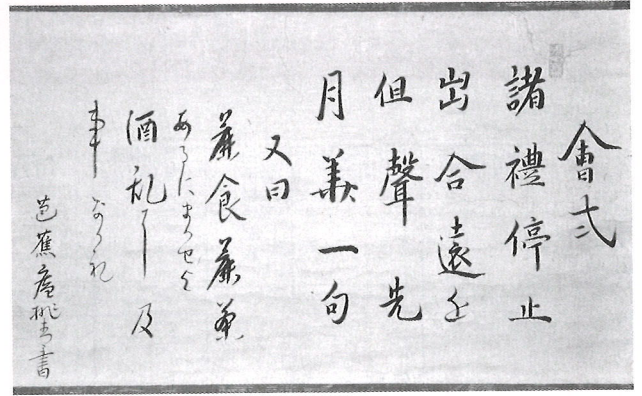 會式
諸禮停止
出合遠近
但聲先
月華一句
又曰
麁食麁菜
あるにまかせよ
酒乱に及
事なかれ
芭蕉庵桃青書